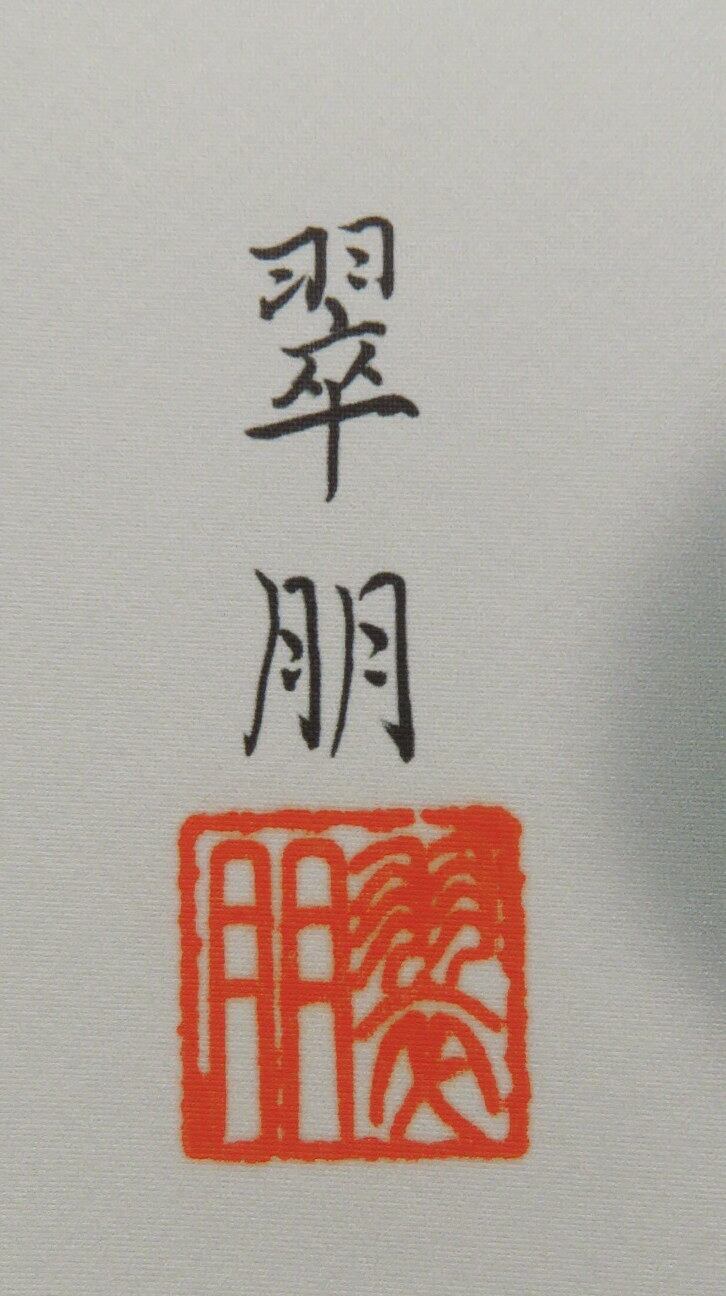 翠朋
翠朋